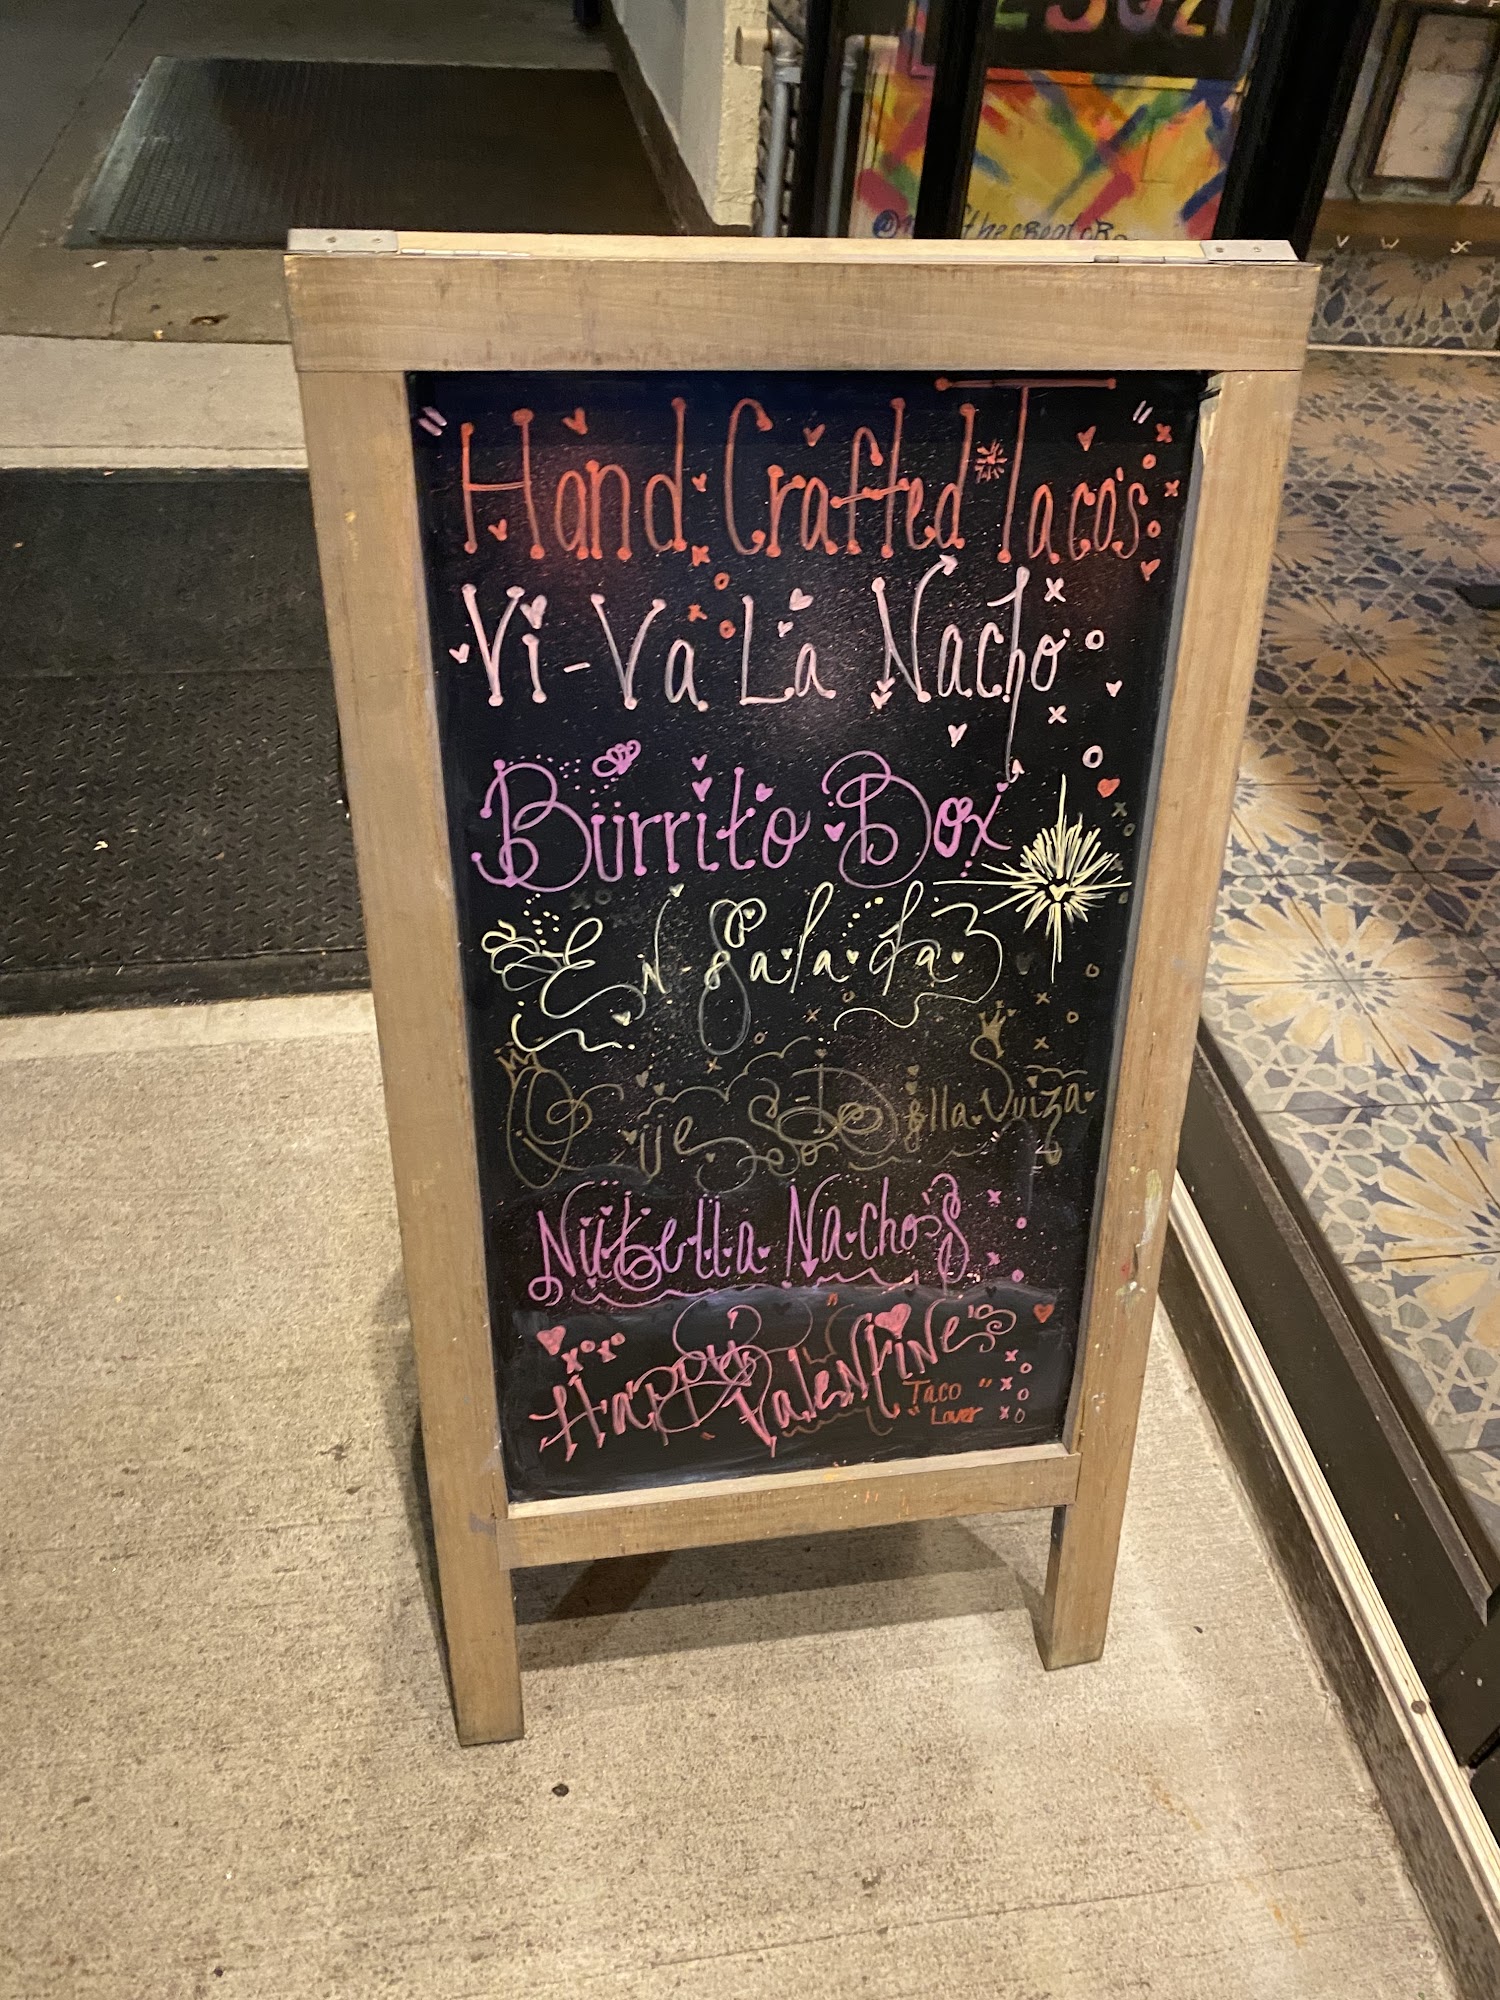 " Hand Crafted Tacos "
Vi-Va La Nacho
Burrito Box
En-salada
Suiza
Nutella Nacho's
Happy Valentine's
"Taco Lover"